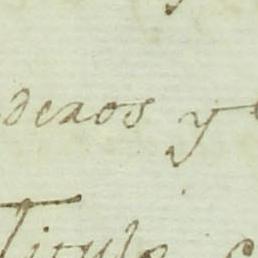 deros y
Titulo